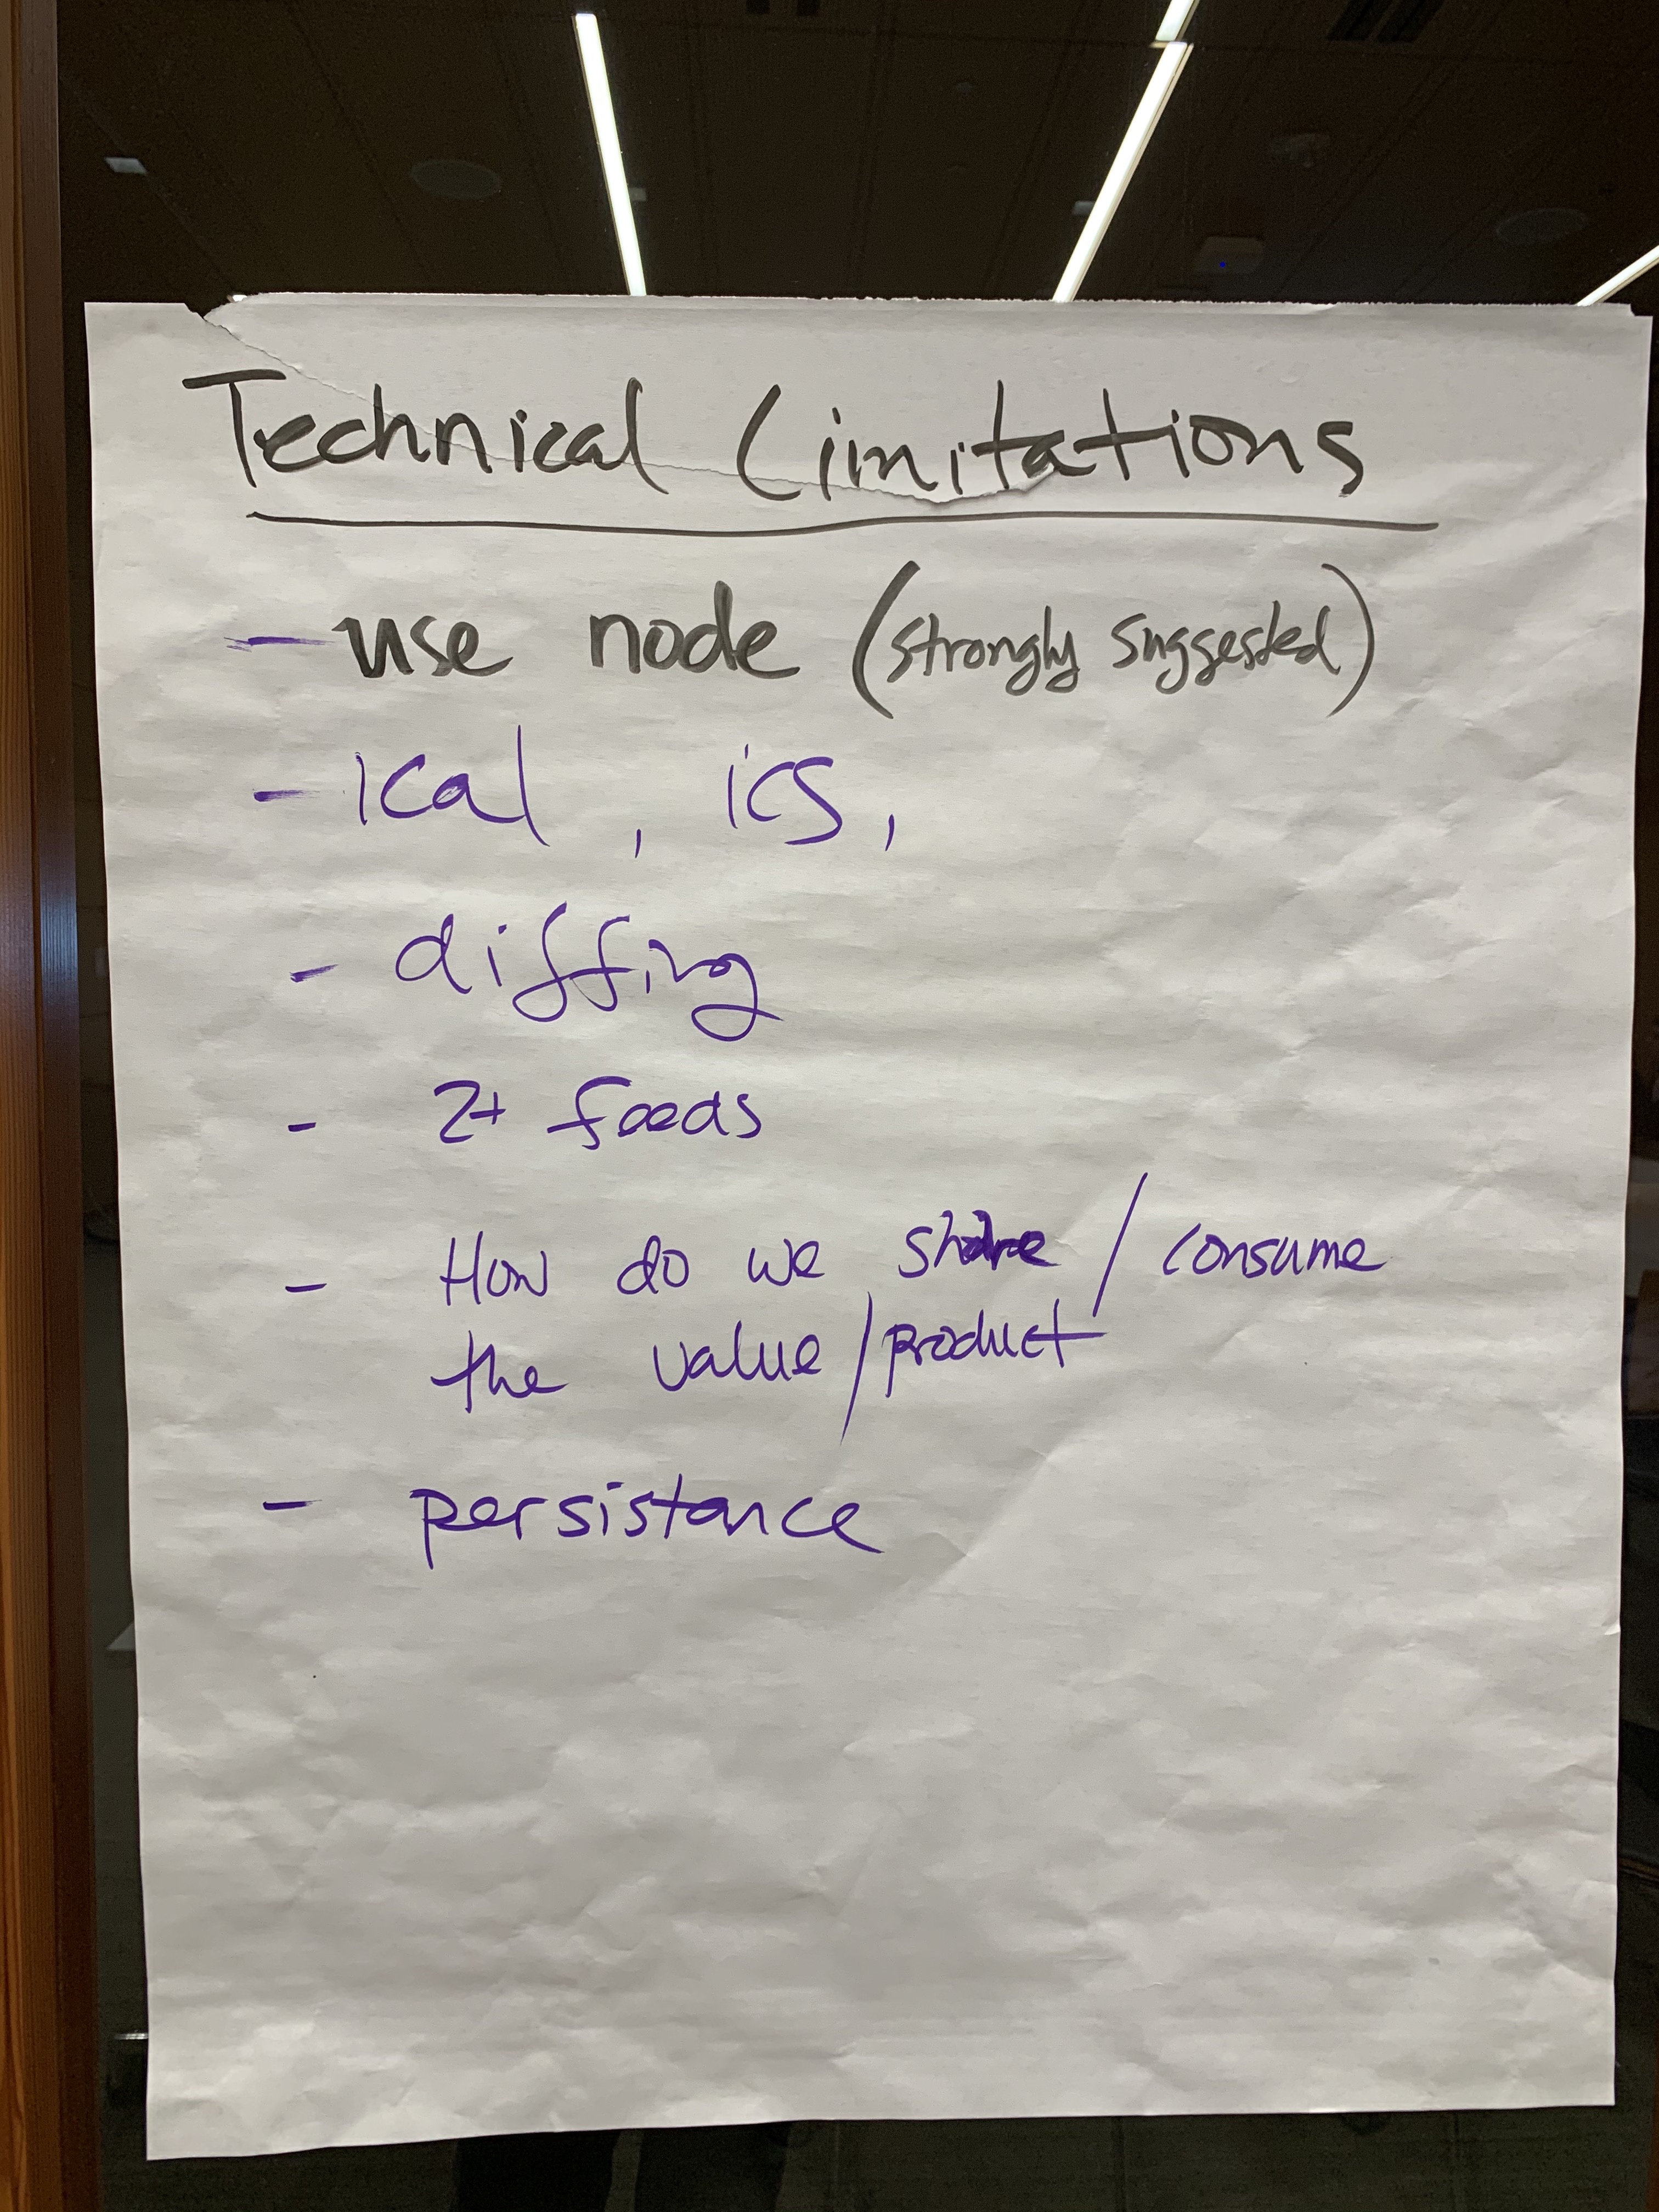 Technical Limitations
- use node (strongly suggested)
- ical, ics,
- diffing
- 2+ feeds
- How do we share / consume
the value/product
- persistance